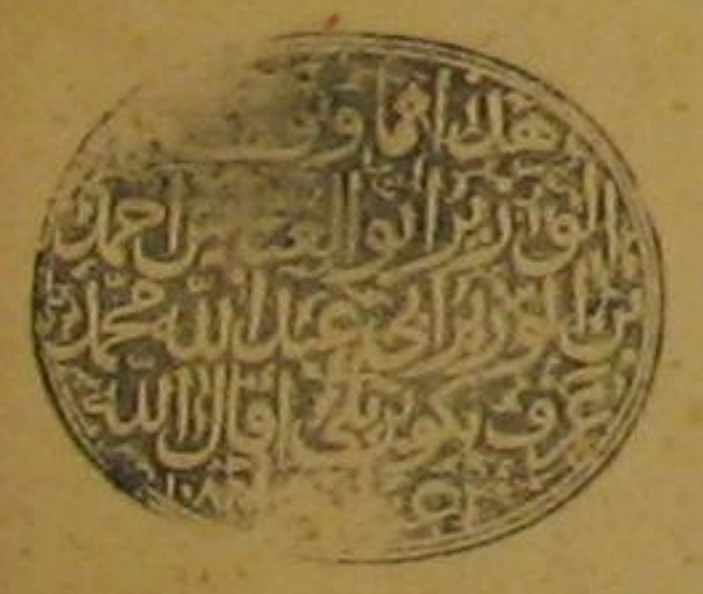 هذا مما وقف
الوزير ابو العباس احمد
بن الوزير ابي عبد الله محمد
عرف بكوبريلي اقال الله
١٠٨